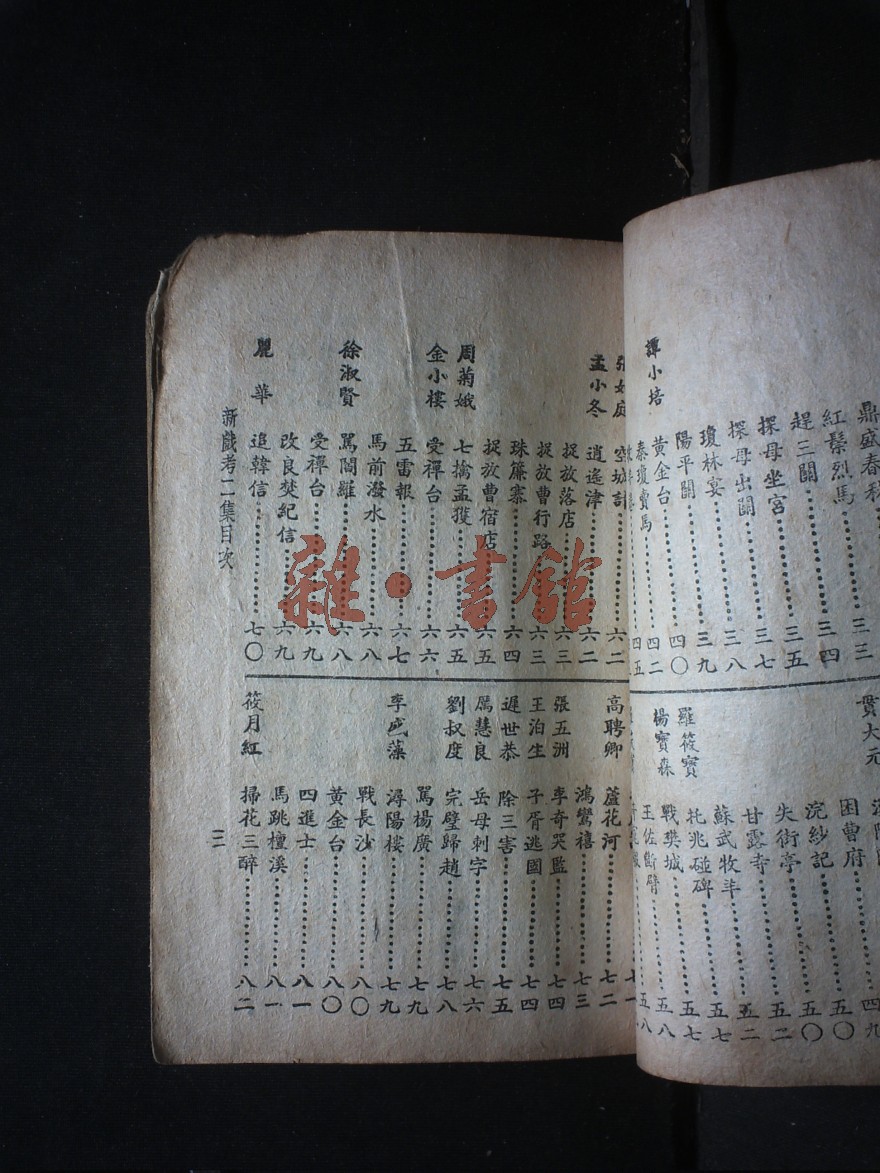 鼎盛春秋 三三
紅鬃烈馬 三四
趕三關 三五
探母坐宮 三七
探母出關 三八
瓊林宴 三九
陽平關 四〇
譚小培 黃金台 四二
秦瓊賣馬 四五
貫大元
四九
困曹府 五〇
浣紗記 五〇
失街亭 五二
甘露寺 五二
蘇武牧羊 五七
托兆碰碑 五七
羅筱寶 戰樊城 五八
楊寶森 王佐斷臂 五八
空城計 六二
孟小冬 逍遙津 六二
捉放落店 六三
捉放曹行路 六三
珠簾寨 六四
捉放曹宿店 六五
周菊娥 七擒孟獲 六五
金小樓 受禪台 六六
五雷報 六七
馬前潑水 六八
徐淑賢 罵閻羅 六八
受禪台 六九
改良焚紀信 六九
麗華 追韓信 七〇
高聘卿 蘆花河 七二
鴻鸞禧 七三
張五洲 李奇哭監 七四
王泊生 子胥逃國 七四
遲世恭 除三害 七五
厲慧良 岳母刺字 七六
劉叔度 完璧歸趙 七八
罵楊廣 七九
李盛藻 潯陽樓 七九
戰長沙 八〇
黃金台 八〇
四進士 八一
馬跳檀溪 八一
筱月紅 掃花三醉 八二
新戲考二集目次
三
雜·書館